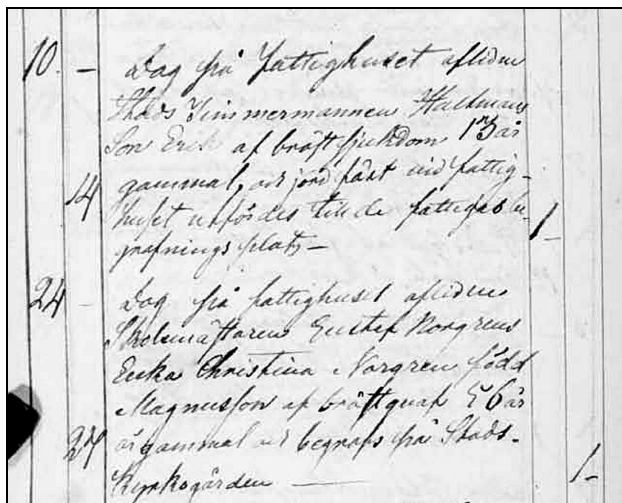 10. – Dog frå fattighuset aflidne
Stads Timmermannen Hallmans
Son Erik af bröstsjukdom 13 år
gammal, och jord fäst vid fattig-
14 huset utfördes till de fattigas be-
grafnings plats – 1 –
24 – Dog frå fattighuset aflidne
Skolmästaren Gustaf Norgrens
Enka Christina Norgren född
Magnusson af bröstqvaf 56 år
år gammal och begrofs på Stads-
27 Kyrkogården — 1 –